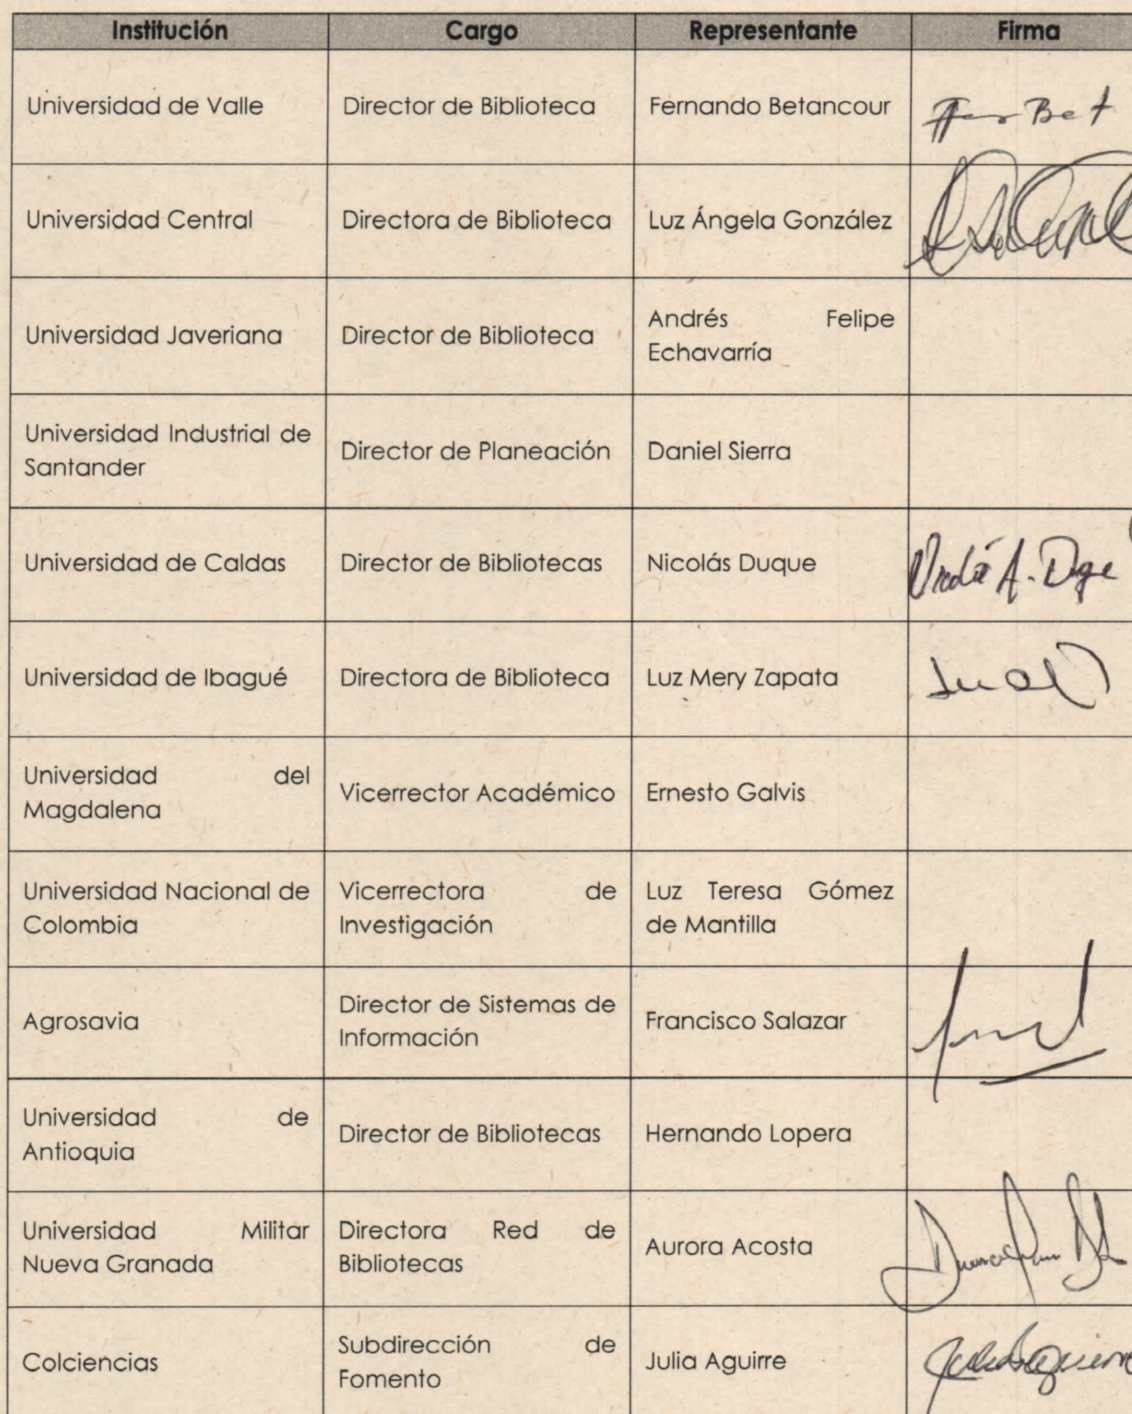 Institución Cargo Representante Firma
Universidad de Valle Director de Biblioteca Fernando Betancour Fer Bet
Universidad Central Directora de Biblioteca Luz Ángela González
Universidad Javeriana Director de Biblioteca Andrés Felipe
Echavarría
Universidad Industrial de
Santander Director de Planeación Daniel Sierra
Universidad de Caldas Director de Bibliotecas Nicolás Duque
Universidad de Ibagué Directora de Biblioteca Luz Mery Zapata
Universidad del
Magdalena Vicerrector Académico Ernesto Galvis
Universidad Nacional de Vicerrectora de Luz Teresa Gómez
Colombia Investigación de Mantilla
Agrosavia Director de Sistemas de
Información Francisco Salazar
Universidad de
Antioquia Director de Bibliotecas Hernando Lopera
Universidad Militar Directora Red de
Nueva Granada Bibliotecas Aurora Acosta
Colciencias Subdirección de
Fomento Julia Aguirre